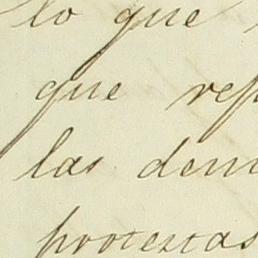 lo que
que rep
las dem
protestas